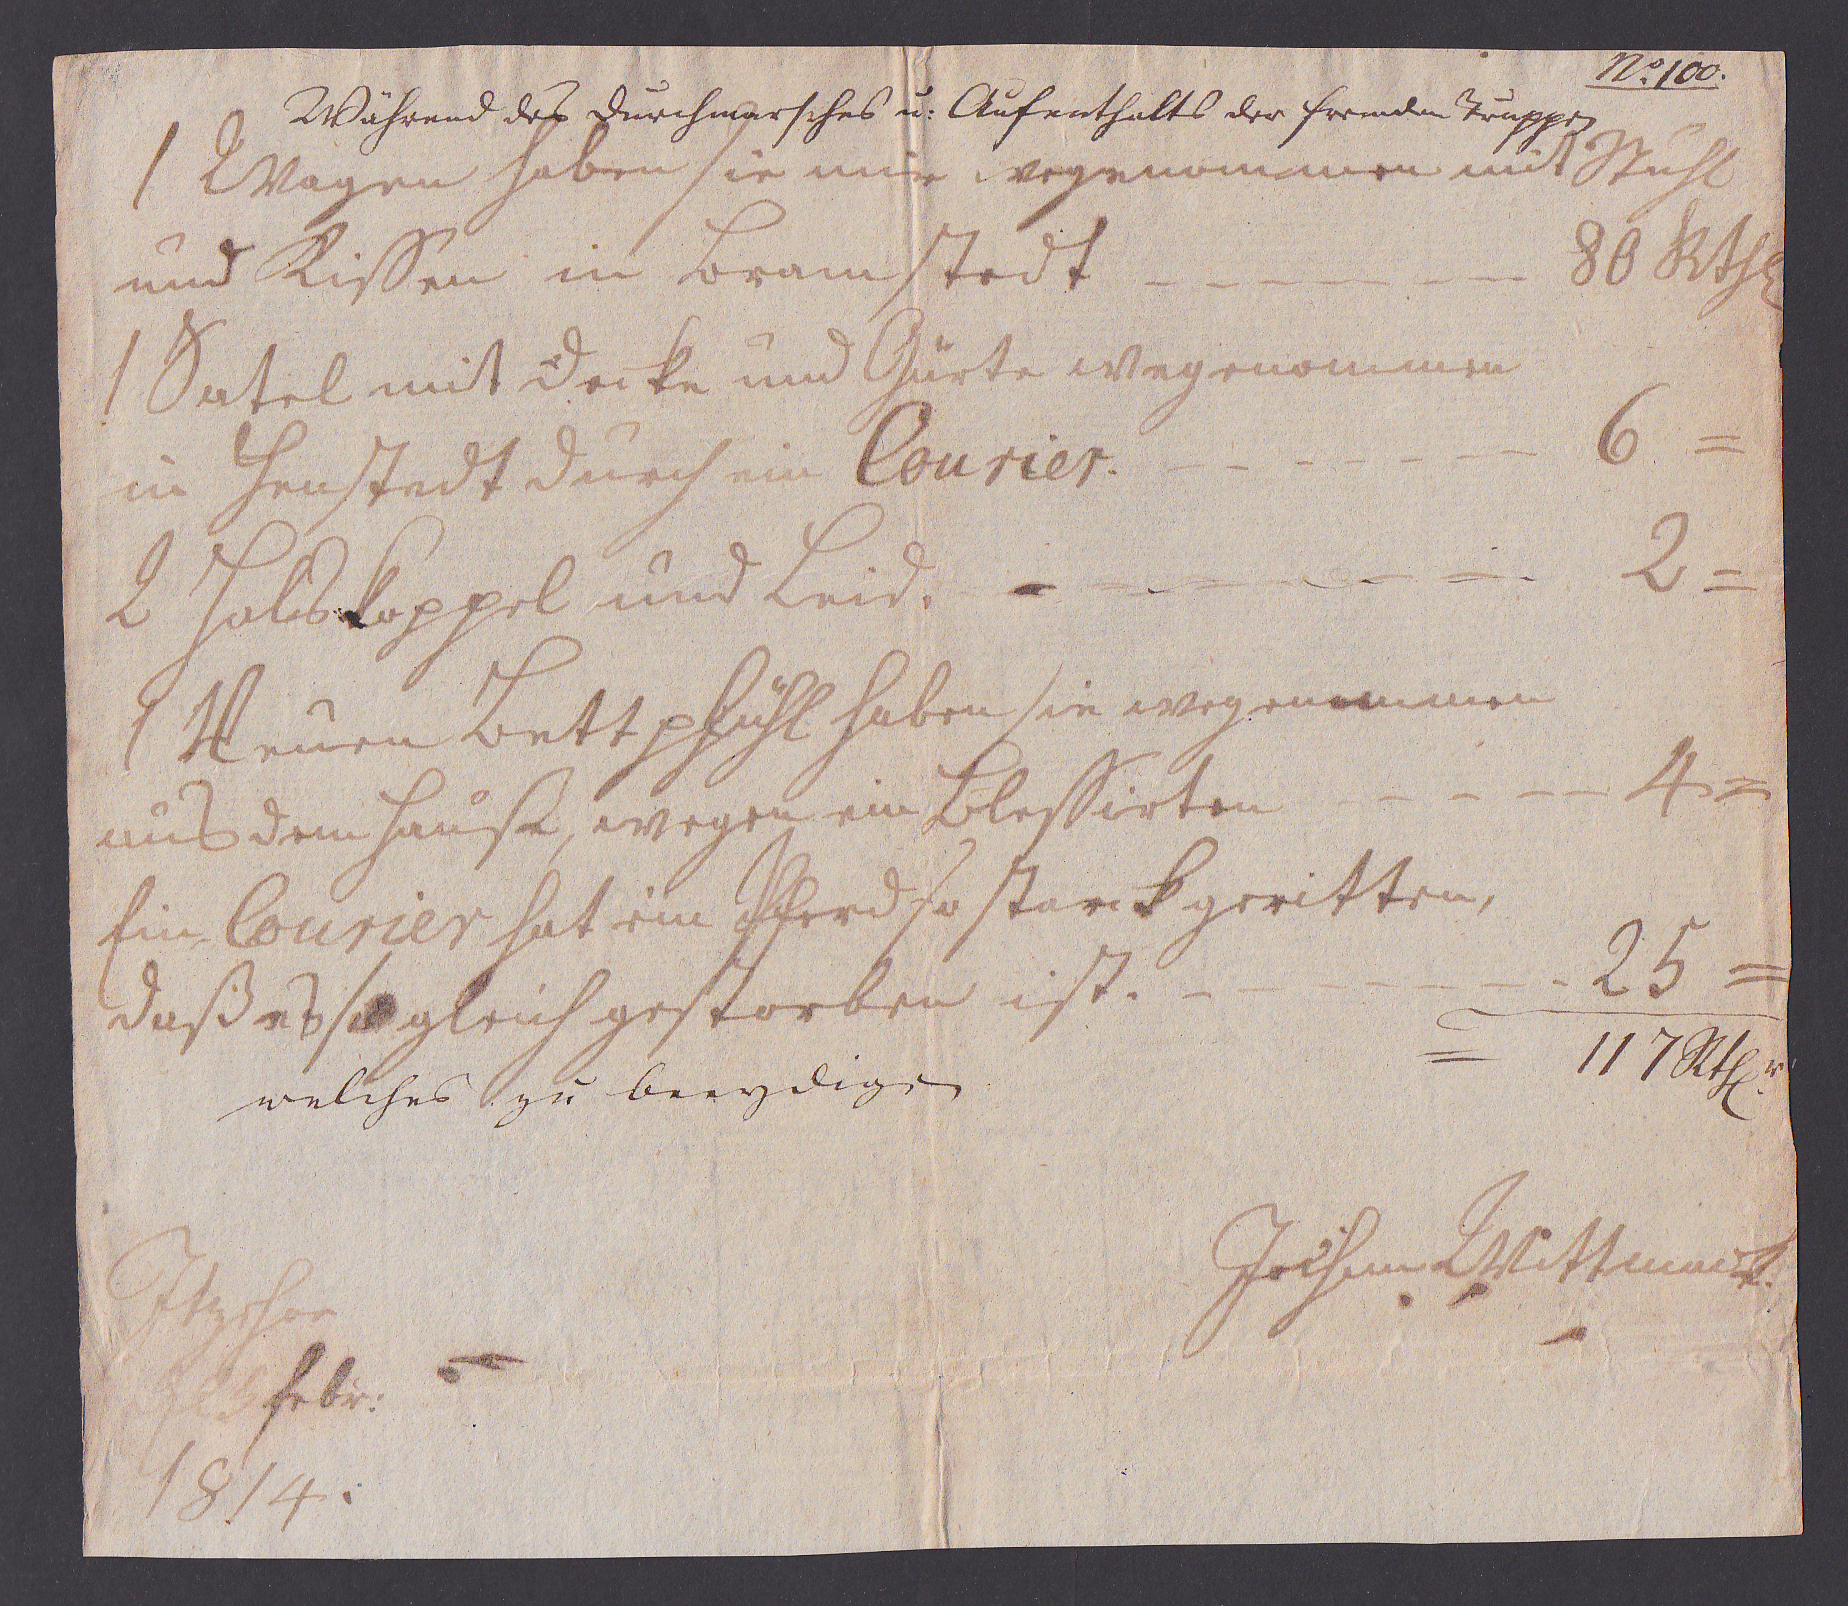 No. 100.
Während des Durchmarsches u: Aufenthalts der fremden Truppen
1 Wagen haben sie mir wegenommen mit Stuhl
und Kissen in Bramstedt - - - - - - - 80 Rthl
1 Satel mit Decke und Gürte wegenommen
in Henstedt durch ein Courier. - - - - - - - 6 =
2 Halskoppel und Leid. - - - - - - - - 2 =
1 Neuen Bettpfühl haben sie wegenommen
aus dem Hause, wegen ein Blessirten - - - - - 4 =
Ein Courier hat ein Pferd so starck geritten,
daß es so gleich gestorben ist. - - - - - - - - 25 =
= 117 Rthlr.
welches zu beeydigen
Jochim Wittmack.
Itzehoe
Febr:
1814.